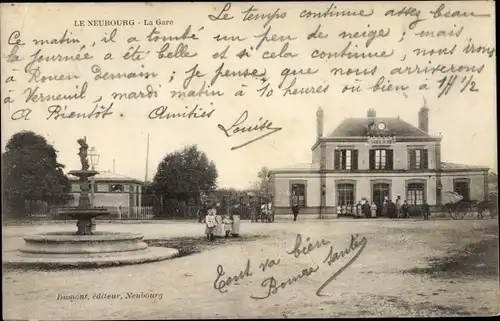 LE NEUBOURG - La Gare
Le temps continue assez beau
Ce matin, il a tombé un peu de neige ; mais
la journée a été belle et si cela continue, nous irons
à Rouen demain ; je pense que nous arriverons
à Verneuil, mardi matin à 10 heures ou bien à 11h 1/2
A Bientôt. Amitiés
Louise
Tout va bien
Bonne santé
Dumont, éditeur, Neubourg